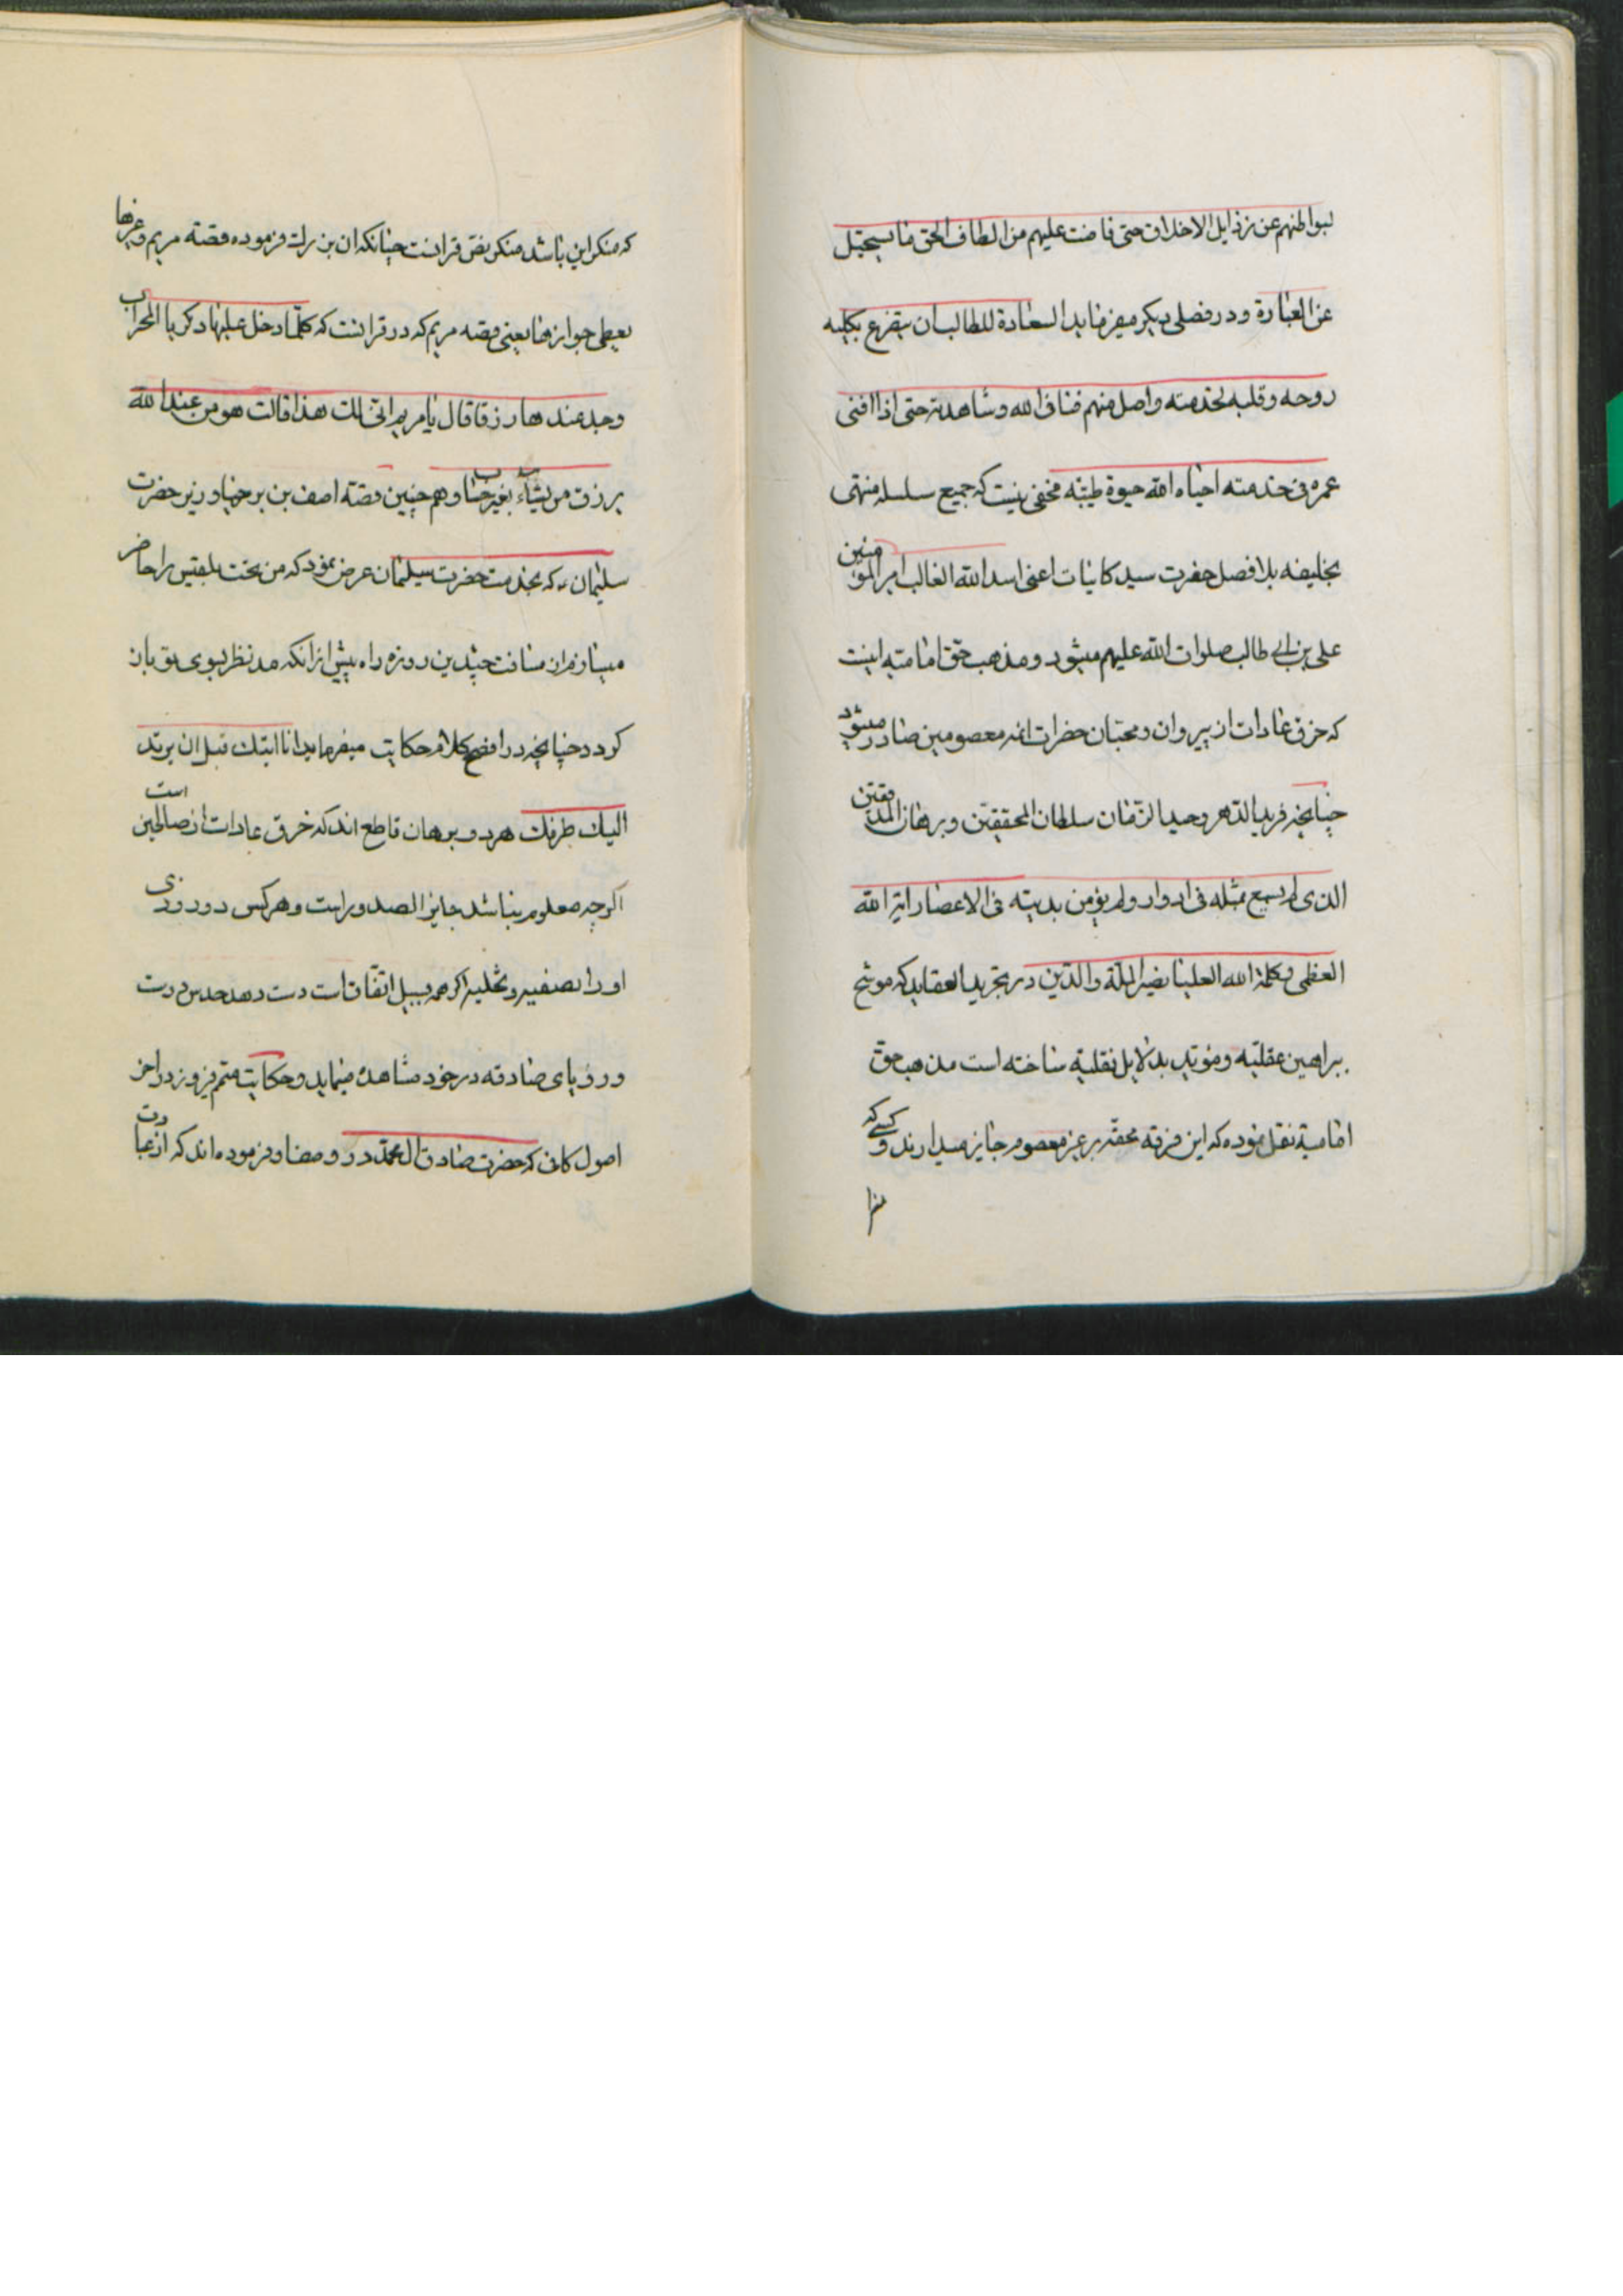 لبواطنهم عن رذایل الاخلاق حتی فاضت علیهم من الطاف الحق ما یستحیل
عن العبارة و در فصلی دیکر میفرماید السعادة للطالبان یتفرع بکلیه
روحه و قلبه لخدمته واصل منهم فناء فی الله و شاهدته حتی اذا افنی
عمره فی خدمته احیاه الله حیوة طیبه مخفی نیست که جمیع سلسله منتهی
بخلیفه بلا فصل حضرت سید کاینات اعنی اسد الله الغالب امیر المؤمنین
علی بن ابی طالب صلوات الله علیهم میشود و مذهب حق امامیه اینست
که خرق عادات از پیروان و محبان حضرات ائمه معصومین صادر میشود
چنانچه فرید الدهر وحید الزمان سلطان المحققین و برهان المدققین
الذی لم یسمع بمثله فی ادوار و لم یؤمن بدیته فی الاعصار ایة الله
العظمی و کلمة الله العلیا نصیر الملة والدین در تجرید العقاید که موشح
ببراهین عقلیه و مؤید بدلایل نقلیه ساخته است مذهب حق
امامیة نقل نموده که این فرقه محقه بر غیر معصوم جایز میدارند و کسی که
که منکر این باشد منکر نص قرانست چنانکه ان بزرك فرموده قصة مریم و غیرها
یعطی جوازها یعنی قصه مریم که در قرانست که کلما دخل علیها ذکریا المحراب
وجد عندها رزقا قال یا مریم انی لك هذا قالت هو من عند الله
یرزق من یشآء بغیر حساب و هم چنین قصة اصف بن برخیا وزیر حضرت
سلیمان ء که بخدمت حضرت سلیمان عرض نمود که من تخت بلقیس را حاضر
میسازم از مسافت چندین روزه راه پیش از انکه مد نظر بسوی فوق بان
کردد چنانچه در افصح کلام حکایت میفرماید انا اتیك قبل ان یرتد
الیك طرفك هر دو برهان قاطع اند که خرق عادات از صالحین است
اکرچه معلوم نباشد جایز الصدور است و هر کس دو روزی
او را تصفیه و تخلیه اکرچه بسبیل اتفاق است دست دهد حدس درست
و رؤیای صادقه در خود مشاهده مینماید و حکایت میتم فیروز در اخر
اصول کافی که حضرت صادق ال محمد در و صفا و فرموده اند که از عبادت